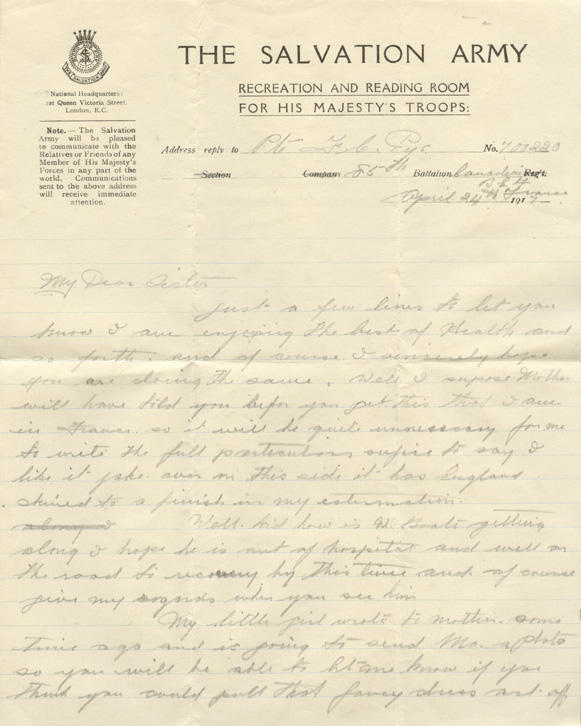 THE SALVATION ARMY
RECREATION AND READING ROOM
FOR HIS MAJESTY'S TROOPS:
National Headquarters:
101 Queen Victoria Street,
London, E.C.
Note. — The Salvation
Army will be pleased
to communicate with the
Relatives or Friends of any
Member of His Majesty's
Forces in any part of the
world. Communications
sent to the above address
will receive immediate
attention.
Address reply to Pte F. C. No. 
Section Company 85th Battalion Canadian Regt.
April 24th France 1917
My Dear Sister
Just a few lines to let you
know I am enjoying the best of Health and
so forth. and of course I sincerely hope
you are doing the same. Well I supose Mother
will have told you befor you get this that I am
in France. so it will be quite unnessesary for me
to write the full particulars sufice to say I
like it jake over on this side it has England
skined to a finish in my estermation.
along I Well kid how is W. Coats getting
along I hope he is out of hospital and well on
the road to recovery by this time and of course
give my regards when you see him
My little girl wrote to mother some
time ago and is going to send Ma a photo
so you will be able to let me know if you
think you could pull that fancy dress act off